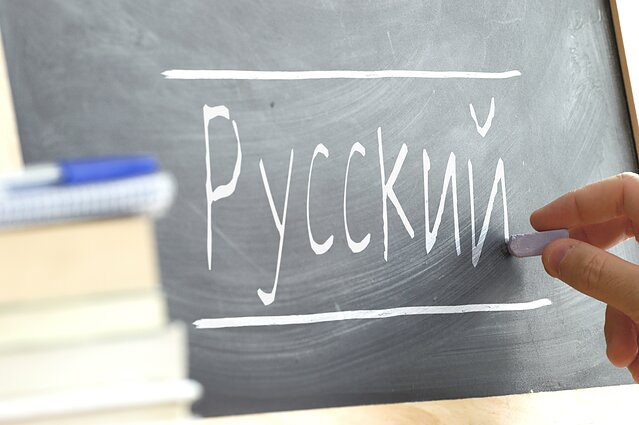 Русский